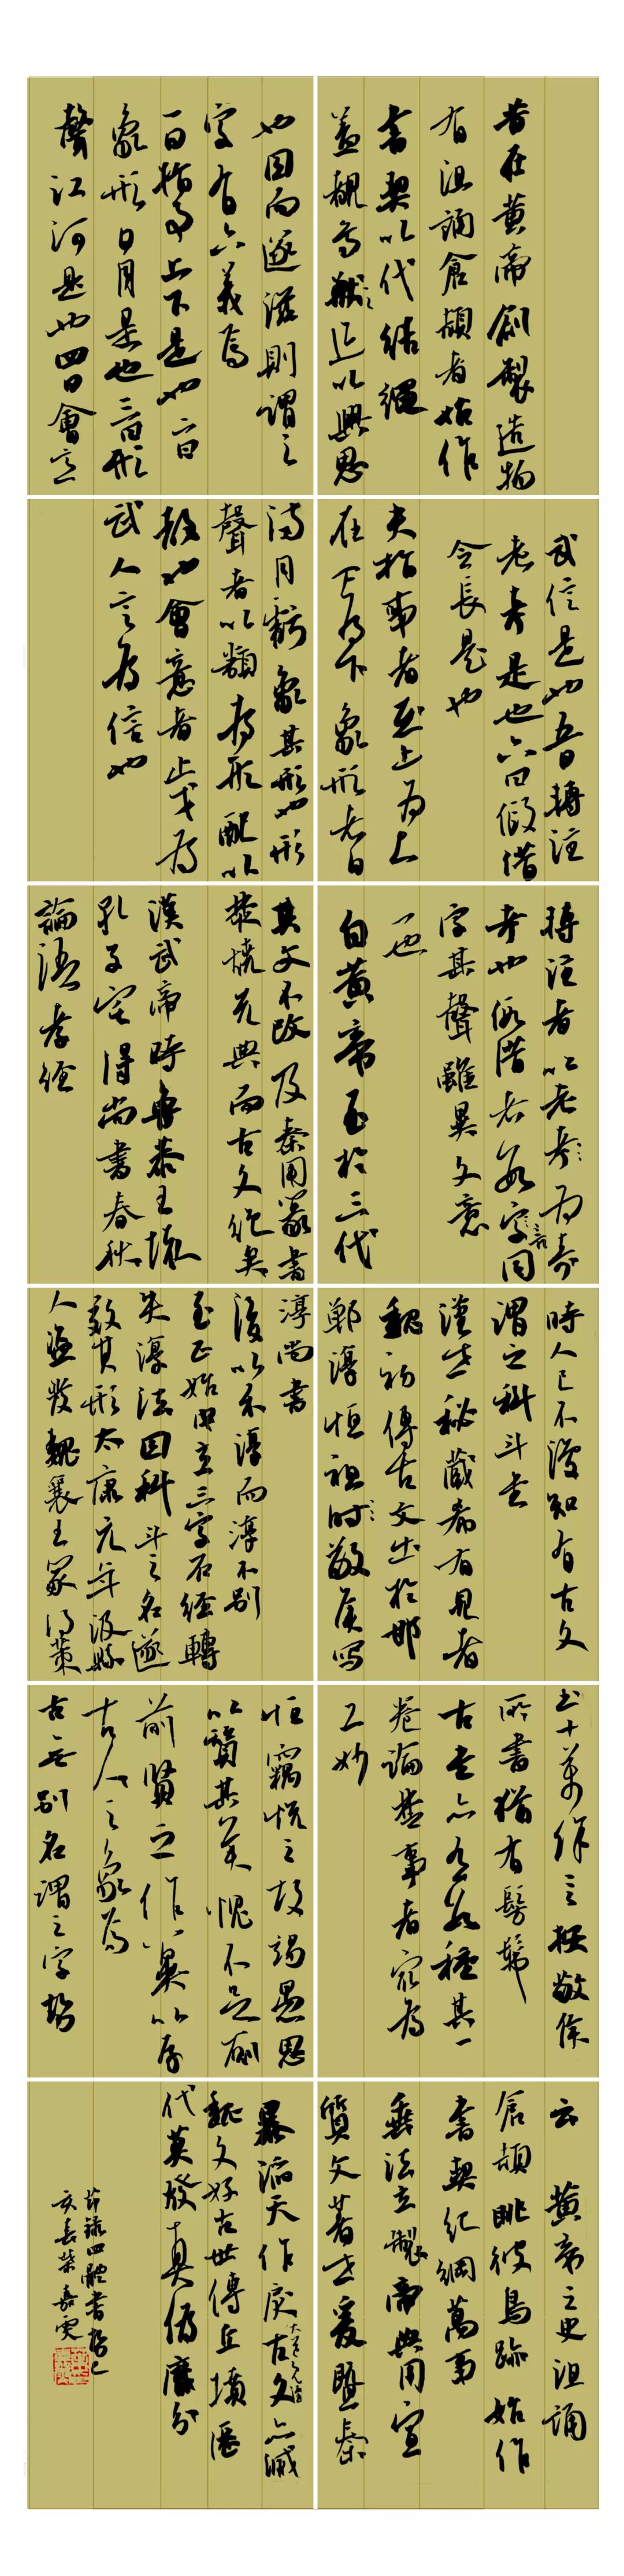 昔在黄帝創製造物
有沮誦倉頡者始作
書契以代結繩
蓋覩鳥獸迹以興思
也因而遂滋則謂之
字有六義焉
一曰指事上下是也二曰
象形日月是也三曰形
聲江河是也四曰會意
武信是也五曰轉注
老考是也六曰假借
令長是也
夫指事者在上為上
在下為下象形者日
滿月虧象其形也形
聲者以類為形配以
聲也會意者止戈為
武人言為信也
轉注者以老考為壽
考也假借者數字同
字其聲雖異文意
一也
自黄帝至於三代
其文不改及秦用篆書
焚燒先典而古文絶矣
漢武帝時魯恭王壞
孔子宅得尚書春秋
論語孝經
時人已不復知有古文
謂之科斗書
漢世秘藏希有見者
魏初傳古文出於邯
鄲淳恒祖敬侯寫
淳尚書
後以示淳而淳不别
至正始中立三字石經轉
失淳法因科斗之名遂
效其形太康元年汲縣
人盗發魏襄王冢得策
書十萬餘言按敬侯
所書猶有髣髴
古書亦有數種其一
卷論楚事者最為
工妙
恒竊悦之故竭愚思
以贊其美愧不足厠
前賢之作冀以存
古人之象焉
古無别名謂之字勢
云 黄帝之史沮誦
倉頡眺彼鳥跡始作
書契紀綱萬事
垂法立製帝典用宣
質文著世爰暨秦
暴滔天作戾大道既泯古文亦滅
魏文好古世傳丘墳歷
代莫發真僞靡分
節録四體書勢乙
亥嘉榮嘉雯